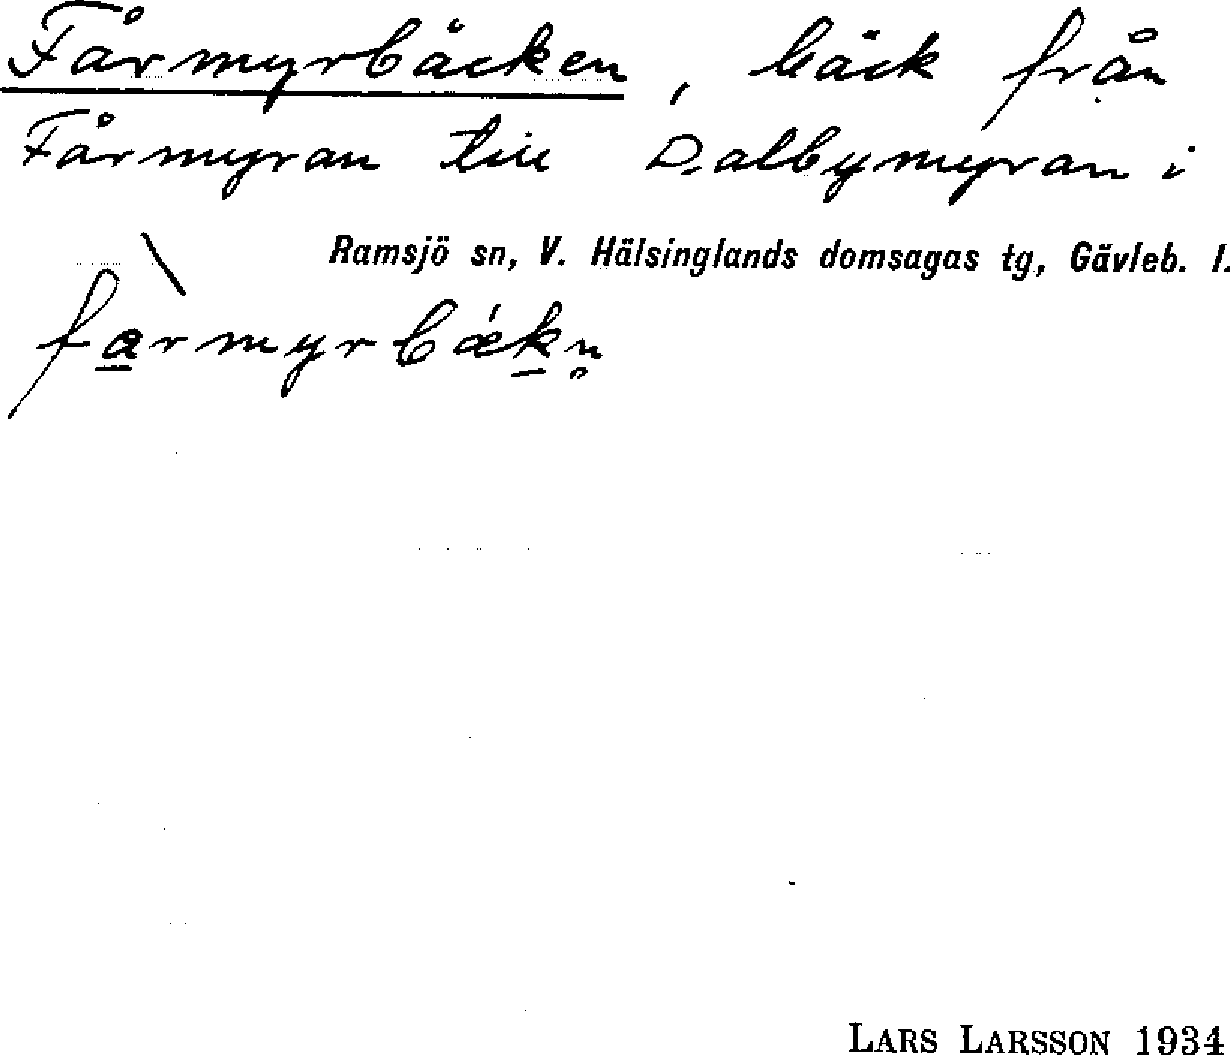 Fårmyrbäcken, bäck från
Fårmyran till Dalbymyran i
Ramsjö sn, V. Hälsinglands domsagas tg, Gävleb. l.
f<u>a</u>̀rmyrbǽ<u>k</u>n̥
LARS LARSSON 1934